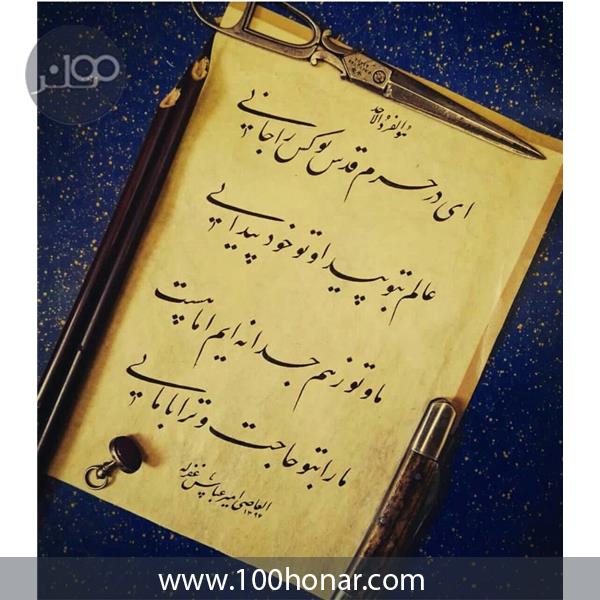 100هنر
هو الفرد الاحد
ای در حرم قدس تو کس را جا نی
عالم بتو پیدا و تو خود پیدا نی
ما و تو ز هم جدا نه ایم اما هست
ما را بتو حاجت و ترا با ما نی
العاصی امیرعباس غفرله
www.100honar.com